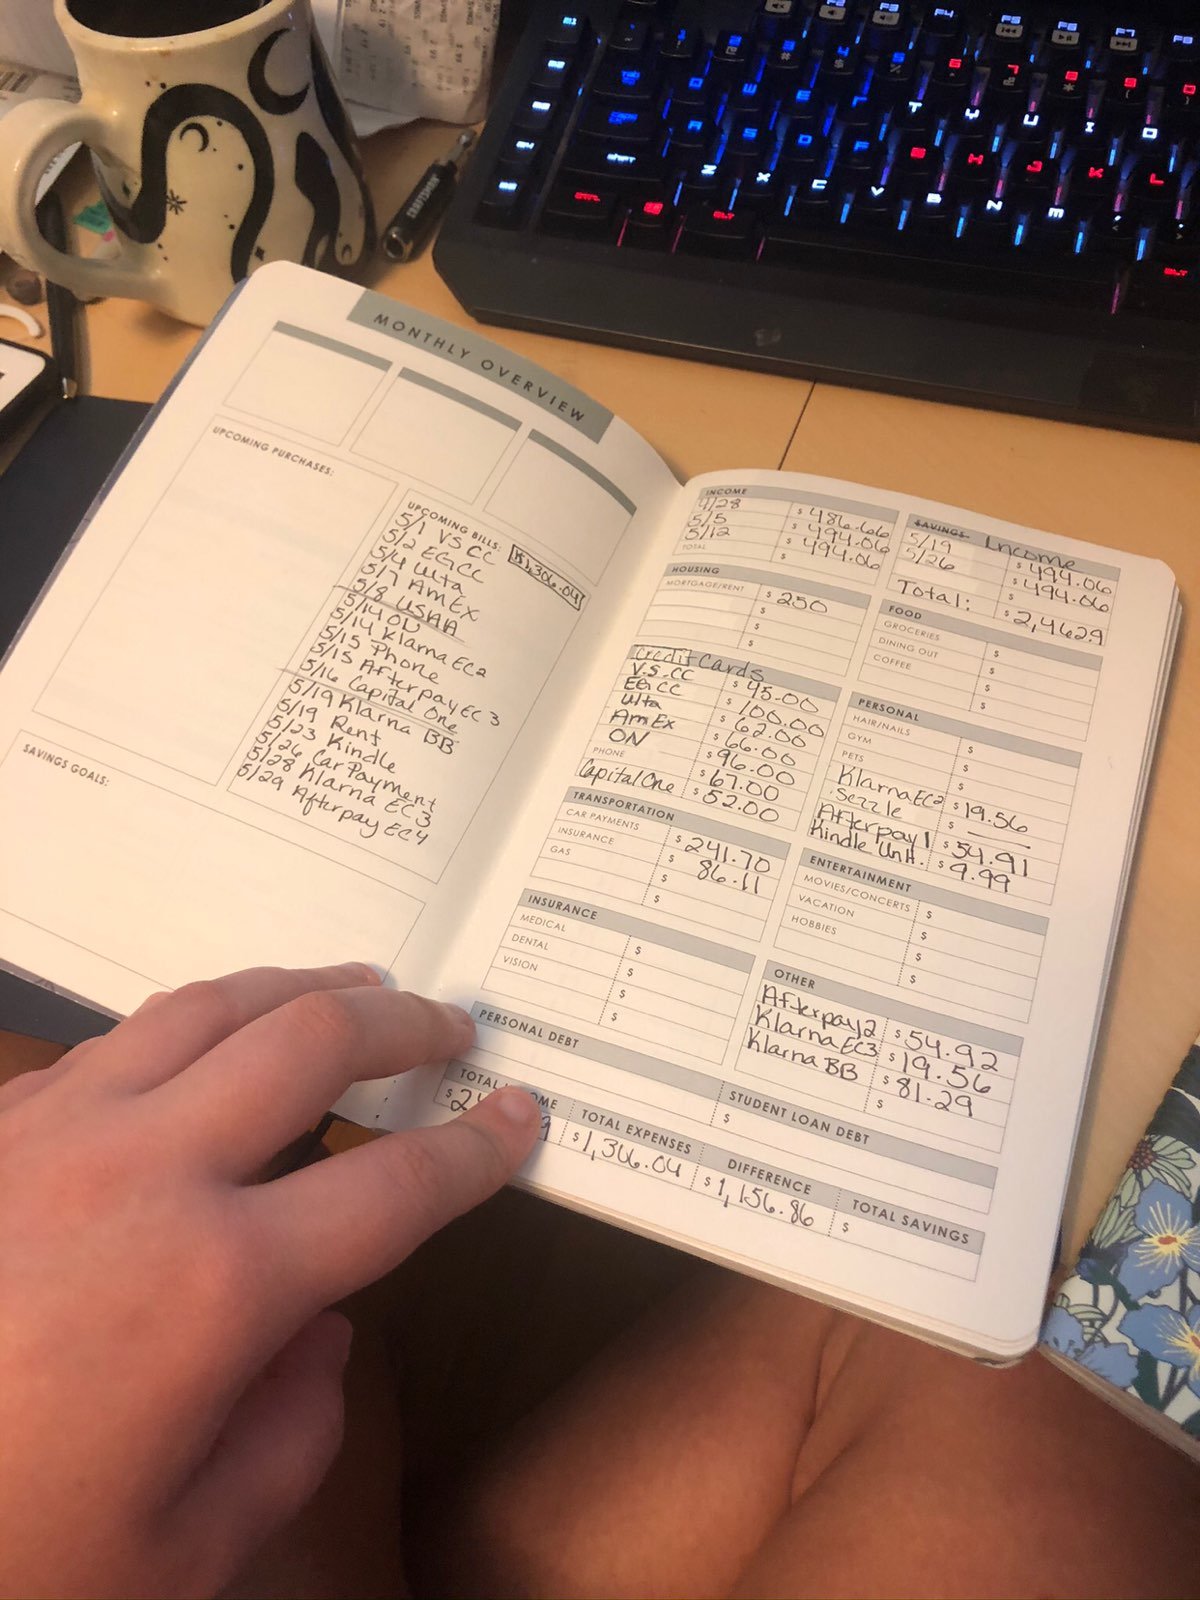 MONTHLY OVERVIEW
UPCOMING PURCHASES:
UPCOMING BILLS:
$1,306.04
5/1 VS CC
5/2 EG CC
5/4 Ulta
5/7 AmEx
5/8 USAA
5/14 ON
5/14 Klarna EC2
5/15 Phone
5/15 Afterpay EC3
5/16 Capital One
5/19 Klarna BB
5/19 Rent
5/23 Kindle
5/26 Car Payment
5/28 Klarna EC3
5/29 Afterpay EC4
SAVINGS GOALS:
INCOME
4/28 $486.66
5/5 $494.06
5/12 $494.06
TOTAL $
HOUSING
MORTGAGE/RENT $250
$
$
$
Credit Cards
V.S. CC $45.00
EG CC $100.00
Ulta $62.00
AmEx $66.00
ON $96.00
PHONE $67.00
Capital One $52.00
TRANSPORTATION
CAR PAYMENTS $241.70
INSURANCE $86.11
GAS $
$
INSURANCE
MEDICAL $
DENTAL $
VISION $
$
PERSONAL DEBT
SAVINGS Income
5/19 $494.06
5/26 $494.06
$
Total: $2,462.9
FOOD
GROCERIES $
DINING OUT $
COFFEE $
$
PERSONAL
HAIR/NAILS $
GYM $
PETS $
Klarna EC2 $19.56
Sezzle $
Afterpay 1 $54.91
Kindle Unlt. $9.99
ENTERTAINMENT
MOVIES/CONCERTS $
VACATION $
HOBBIES $
$
OTHER
Afterpay 2 $54.92
Klarna EC3 $19.56
Klarna BB $81.29
$
STUDENT LOAN DEBT
$
TOTAL EXPENSES
$1,306.04
DIFFERENCE
$1,156.86
TOTAL SAVINGS
$
CRAFTSMAN